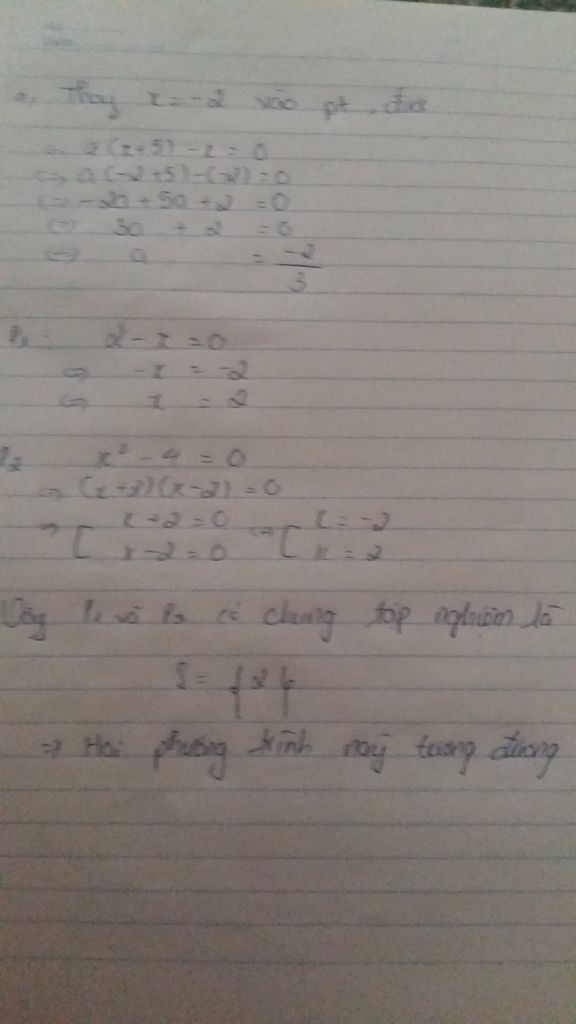 a, Thay x = -2 vào pt, được
⇔ a(x+5) - x = 0
⇔ a(-2+5) - (-2) = 0
⇔ -2a + 5a + 2 = 0
⇔ 3a + 2 = 0
⇔ a = -2/3
P₁: 2 - x = 0
⇔ -x = -2
⇔ x = 2
P₂ x² - 4 = 0
⇔ (x+2)(x-2) = 0
⇔ [ x+2 = 0 ⇔ [ x = -2
x-2 = 0 x = 2
Vậy P₁ và P₂ có chung tập nghiệm là
S = {2}
⇒ Hai phương trình này tương đương